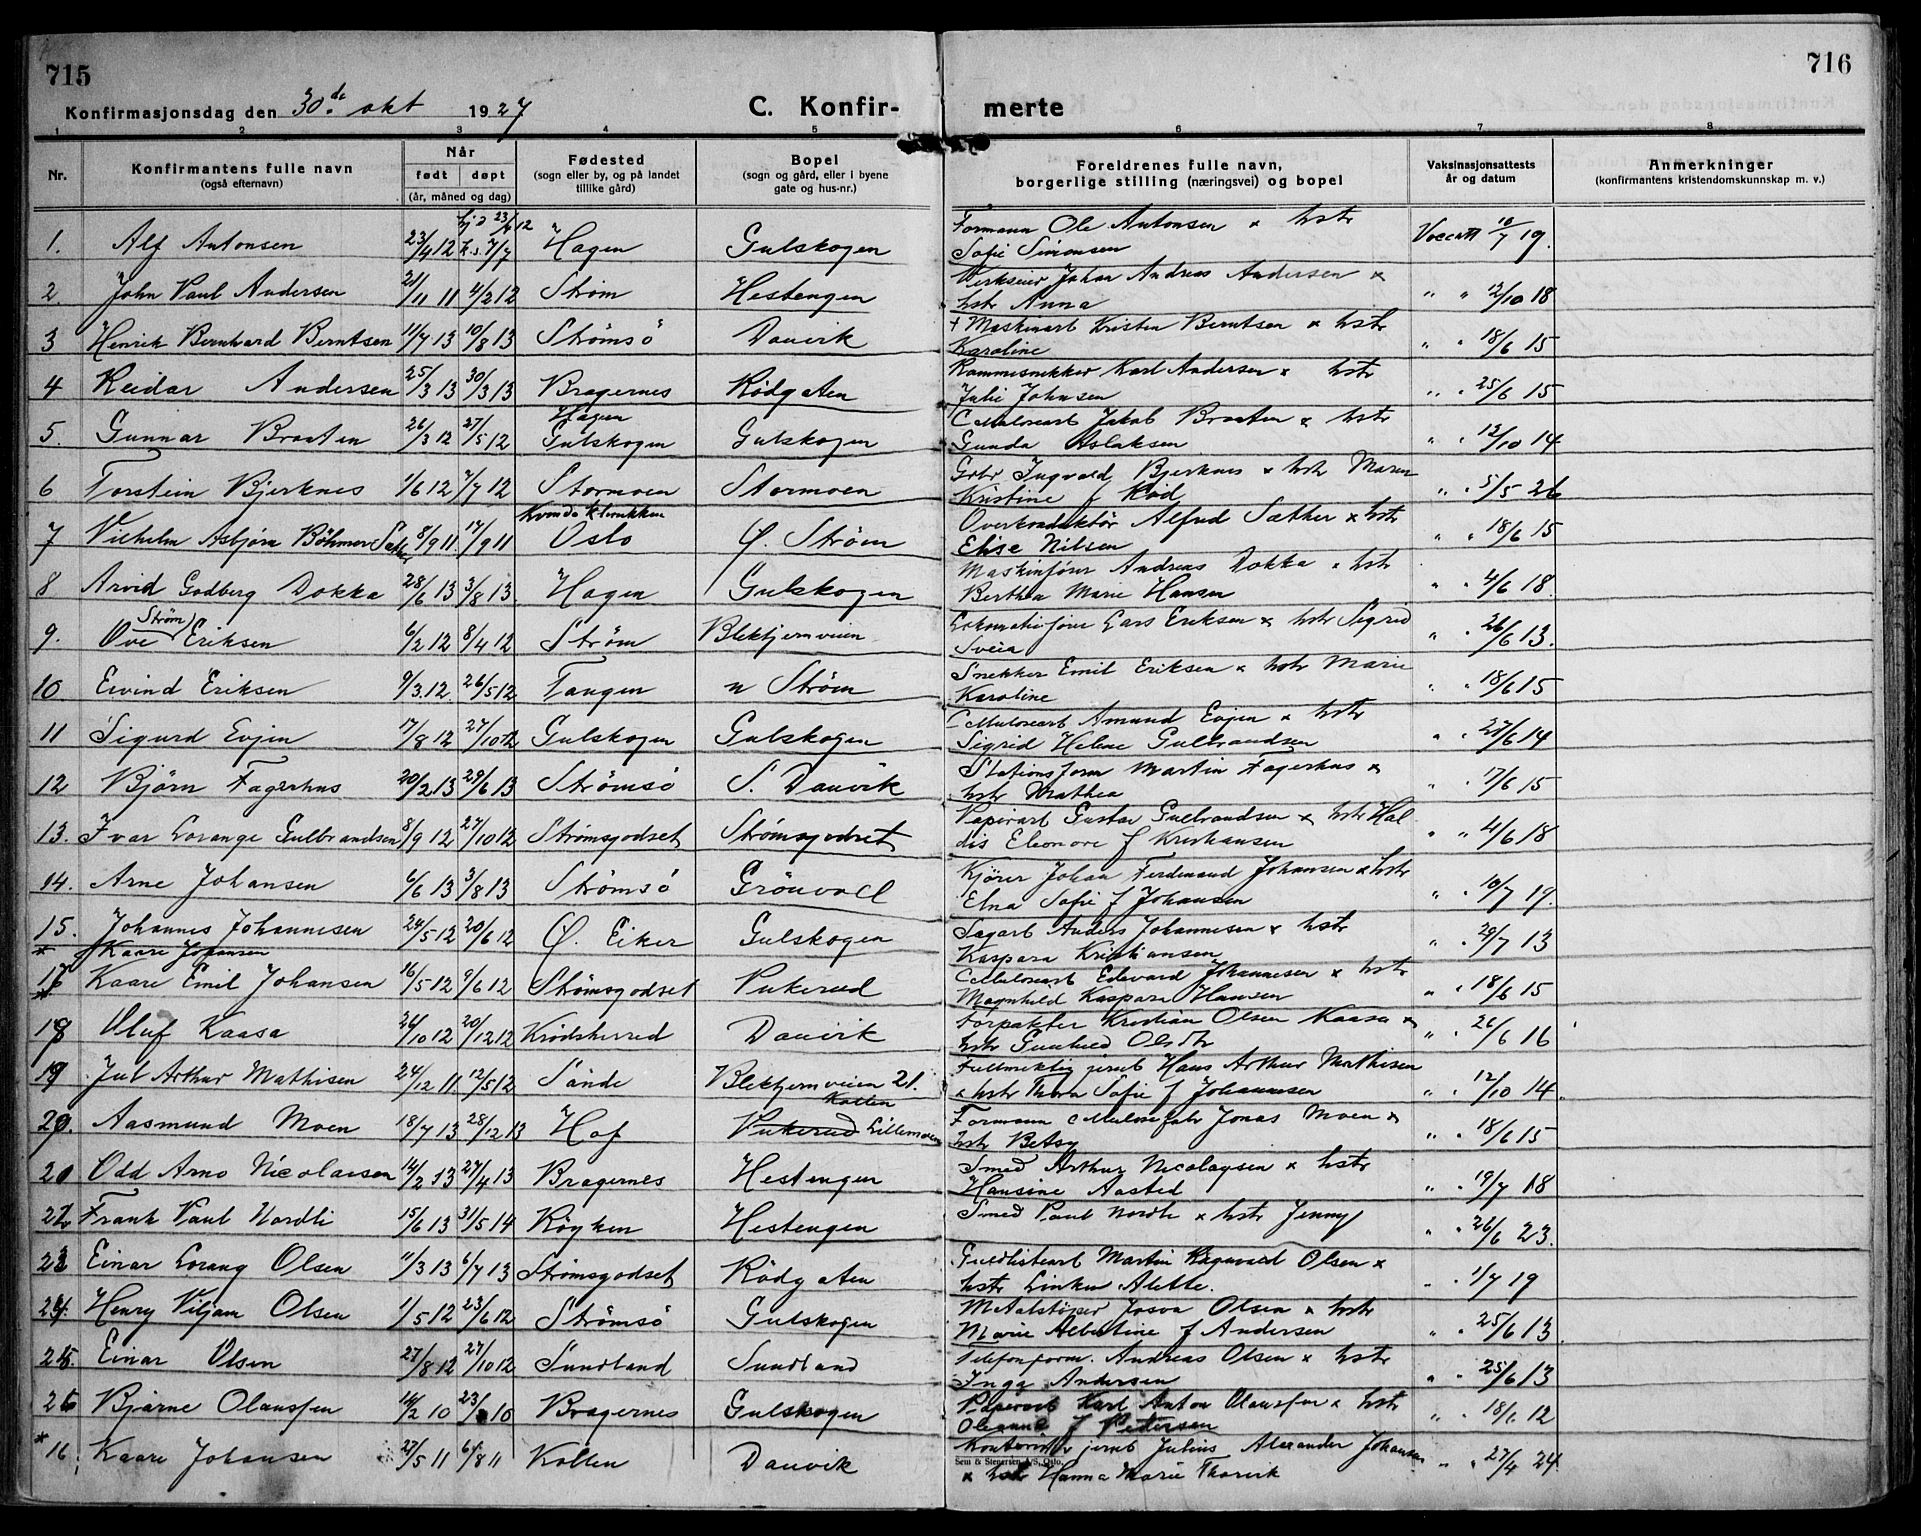 715
716
Konfirmasjonsdag den 30.de okt 1927
C. Konfir- merte
1 2 3 4 5 6 7 8
Nr.
Konfirmantens fulle navn
(også efternavn)
Når
født døpt
(år, måned og dag)
Fødested
(sogn eller by, og på landet
tillike gård)
Bopel
(sogn og gård, eller i byene
gate og hus-nr.)
Foreldrenes fulle navn,
borgerlige stilling (næringsvei) og bopel
Vaksinasjonsattests
år og datum
Anmerkninger
(konfirmantens kristendomskunnskap m. v.)
1. Alf Antonsen 23/4 12 hjd 23/4 12 k.s. 7/7 Hagen Gulskogen Formann Ole Antonsen x hstr
Sofie Simonsen Vaccatt 10/7 19.
2. John Paul Andersen 21/11 11 4/2 12 Strøm Hestengen Verkseier Johan Andreas Andersen x
hstr Anna " " 12/10 18
3 Henrik Bernhard Berntsen 11/7 13 10/8 13 Strømsö Danvik + Maskinarb Kristen Berntsen x hstr
Karoline " " 18/6 15
4 Reidar Andersen 25/3 13 30/3 13 Bragernes Rödgaten Rammesnekker Karl Andersen x hstr
Julie Johnsen " " 25/6 15
5. Gunnar Braaten 26/3 12 27/5 12 Hagen Gulskogen Gulskogen Cellulosearb Jakob Braaten x hstr
Gunda Aslaksen " " 12/10 14
6 Torstein Bjerknes 1/6 12 7/7 12 Stormoen Stormoen Gbr Ingvald Bjerknes x hstr Maren
Kristine f Röd " " 5/5 26
7 Vilhelm Asbjørn Böhmer Sæther 8/9 11. 17/9 11 Kvindeklinikken Oslo Ø. Strøm Overkonduktör Alfred Sæther x hstr
Elise Nilsen " " 18/6 15
8 Arvid Godberg Dokka 28/6 13 3/8 13. Hagen Gulskogen Maskinfører Andreas Dokka x hstr
Berthea Marie Hansen " " 4/6 18.
9. Ove Strøm Eriksen 6/2 12 8/4 12 Strøm Blekhjernveien Lokomotivfører Lars Eriksen x hstr Sigrid
Sveia " " 26/6 13.
10 Eivind Eriksen 9/3.12. 26/5 12 Tangen n Strøm Snekker Emil Eriksen x hstr Marie
Karoline " " 18/6 15
11 Sigurd Evjen 17/8 12 27/10 12 Gulskogen Gulskogen Cellulosearb Amund Evjen x hstr
Sigrid Helene Gulbrandsen " " 27/6 14
12 Björn Fagerhus 20/2 13 29/6 13 Strömsö S. Danvik Stationsform Martin Fagerhus x
hstr Mathea " " 17/6 15
13. Ivar Lorange Gulbrandsen 8/9 12 27/10 12 Strømsgodset Strømsgodset Papirarb Gustav Gulbrandsen x hstr Hal
dis Eleonore f Kristiansen " " 4/6 18
14. Arne Johansen 6/6 13 3/8 13 Strømsö Grönvoll Kjörer Johan Ferdinand Johansen x hstr
Elna Sofie f Johansen " " 10/7 19.
15. Johannes Johannesen 24/5 12 20/6 12 Ø. Eiker Gulskogen Sagarb Anders Johannesen x hstr
Kaspara Kristiansen " " 29/7 13
* Kaare Johansen
17 * Kaare Emil Johansen 16/5 12 9/6 12 Strömsgodset Pukerud Cellulosearb Edevard Johannesen x hstr
Magnhild Kaspara Hansen " " 18/6 15
18 Oluf Kaasa 26/10 12 20/12 12 Krödsherred Danvik Forpakter Kristian Olsen Kaasa x
hstr " " 26/6 16
19 Jul Arthur Mathisen 24/12 11 12/5 12 Sande Blekhjernveien 21. Fullmektig jernb Hans Arthur Mathisen
x hstr Thora Sofie f Johannesen " " 12/10 14.
20. Aasmund Moen 18/7 13 28/12 13 Hof Kollen Pukerud Lillemoen Formann Cellulosefabr Jonas Moen x
hstr Betsy " " 18/6 15
20 Odd Arno Nicolaisen 14/2 13 27/4 13 Bragernes Hestengen Smed Arthur Nicolaysen x hstr
Hansine Aasted " " 19/7 18
22 Frank Paul Nordli 15/6 13 31/5 14 Röyken Hestengen Smed Paul Nordli x hstr Jenny
" " 26/6 23.
23 Einar Lorang Olsen 11/3 13 6/7 13 Strömsgodset Rödgaten Guldlistearb Martin Ragnvald Olsen x
hstr Linken Alette. " 1/7 19
24. Henry Viljam Olsen 1/5 12 23/6 12 Strömsö Gulskogen Metalstöper Josva Olsen x hstr
Marie Albertine f Andersen " " 25/6 13.
25. Einar Olsen 27/8 12 27/10 12 Sundland Sundland Telefonform. Andreas Olsen x hstr
Inga Andersen " " 25/6 13
26 Bjarne Olaussen 14/2 10 23/ 10 Bragernes Gulskogen Papirarb Karl Anton Olaussen x hstr
Oleanna f Petersen " " 18/6 12
* 16 Kaare Johansen 27/5 11 6/8 11 Kollen Danvik Kontorist jernb Julius Alexander Johansen
x hstr Hanna Marie Thorvik " " 27/4 24.
Sem & Stenersen A/S, Oslo.